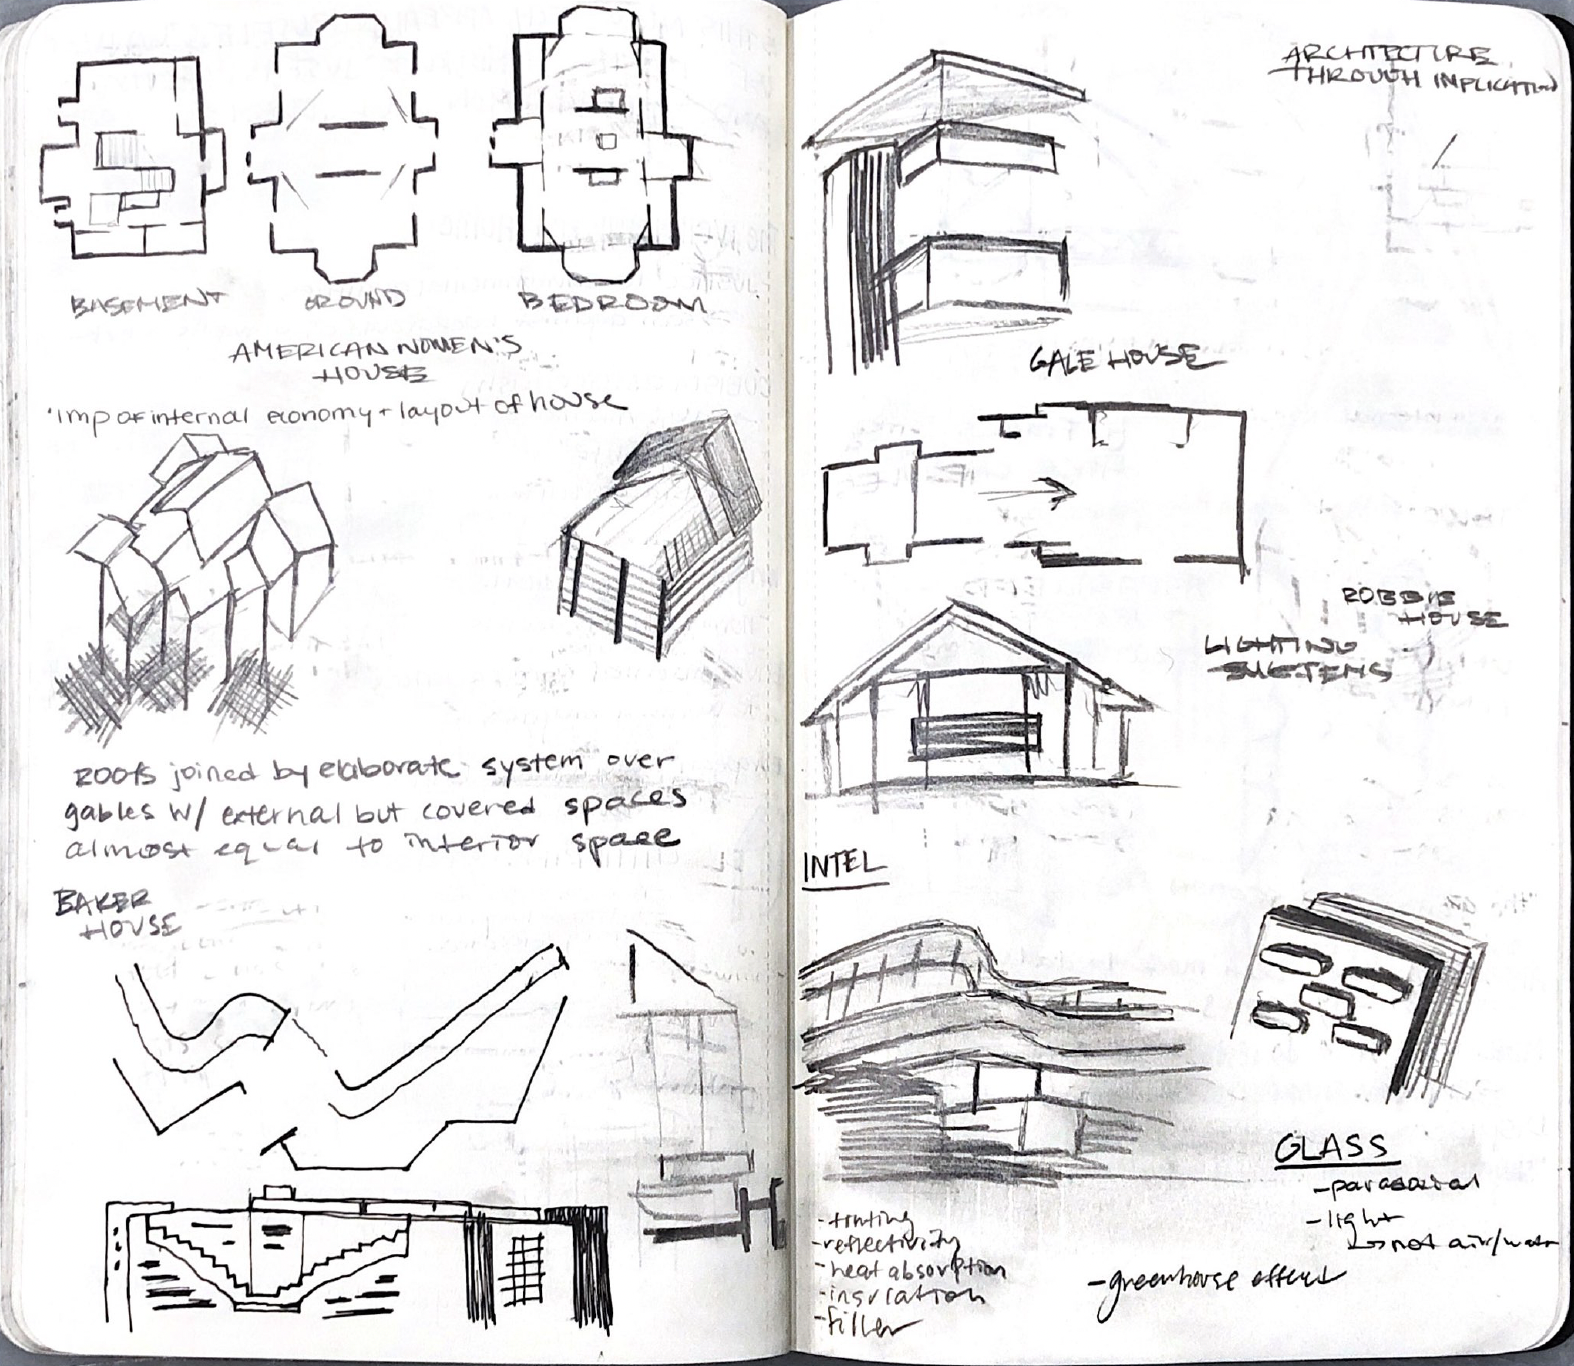 BASEMENT
GROUND
BEDROOM
AMERICAN WOMEN'S
HOUSE
'imp of internal economy + layout of house
roofs joined by elaborate system over
gables w/ external but covered spaces
almost equal to interior space
BAKER
HOUSE
ARCHITECTURE
THROUGH IMPLICATION
GALE HOUSE
ROBBIE
HOUSE
LIGHTING
SYSTEMS
INTEL
GLASS
-light
↳not air/water
-greenhouse effect
-reflectivity
-heat absorption
-insulation
-filler